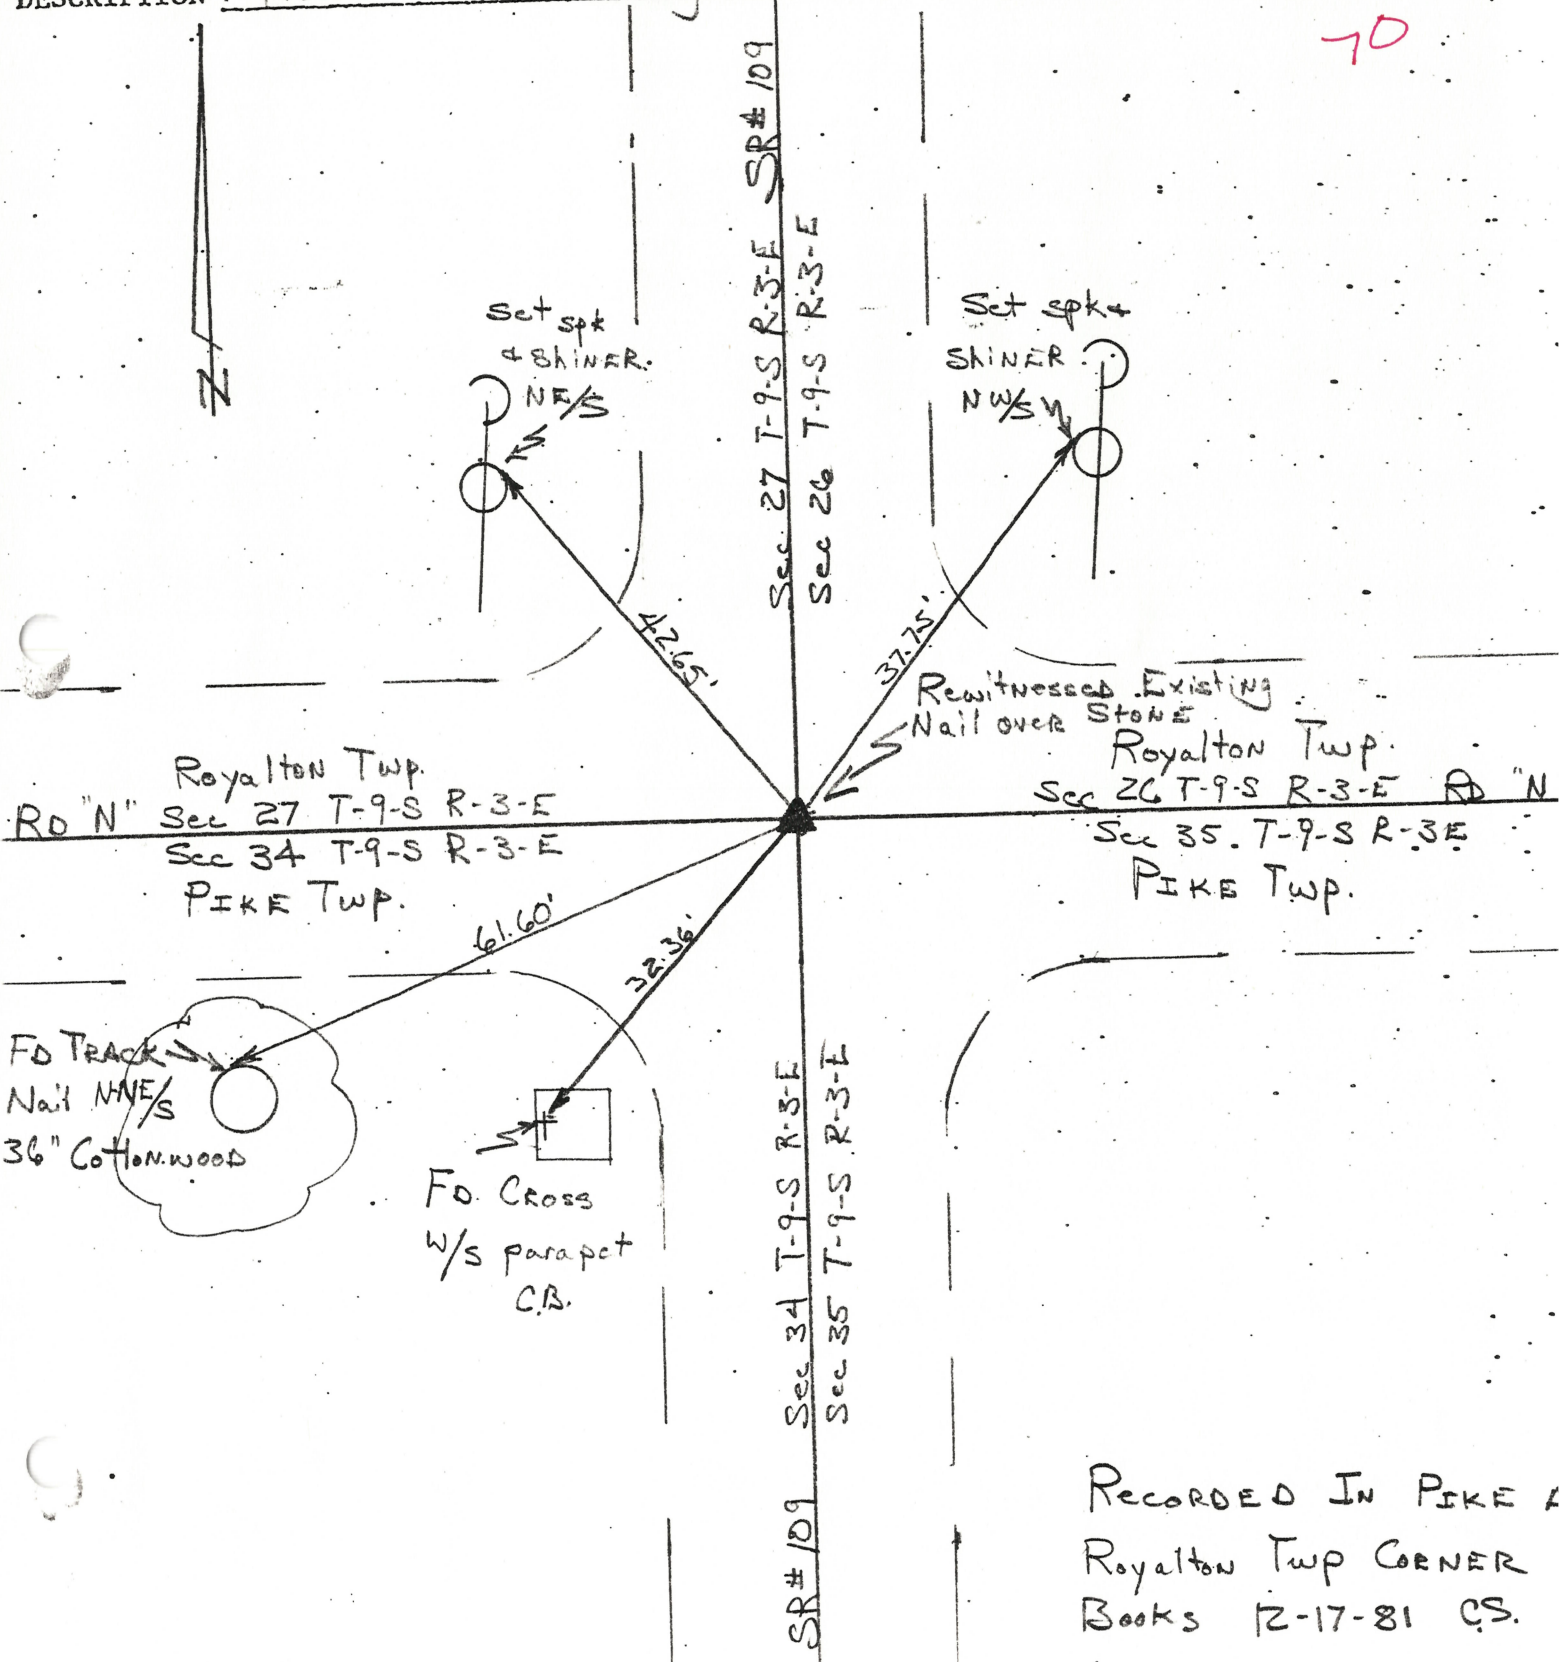 DESCRIPTION
70
SR# 109
Sec 27 T-9-S R-3-E
Sec 26 T-9-S R-3-E
Set spk
& ShiNER.
NE/S
Set spk &
ShiNER
NW/S
N
42.65'
37.75'
Rewitnessed Existing
Nail over Stone
Royalton Twp.
Royalton Twp.
RD "N" Sec 27 T-9-S R-3-E
Sec 26 T-9-S R-3-E RD "N
Sec 34 T-9-S R-3-E
Sec 35. T-9-S R-3E
PIKE Twp.
PIKE Twp.
61.60'
32.36'
FD TRACK
Nail N-NE/S
36" Cottonwood
FD. Cross
W/S parapet
C.B.
Sec 34 T-9-S R-3-E
Sec 35 T-9-S R-3-E
SR# 109
RECORDED IN PIKE
Royalton Twp CORNER
Books 12-17-81 C.S.